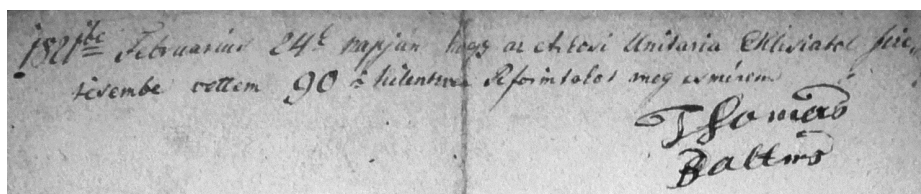 1821be Februarius 24k napján hogy az Unitaria Eklésiatol
tésembe vettem 90 = kilentzven Rforintokot meg esmérem
Thomas
Baltres